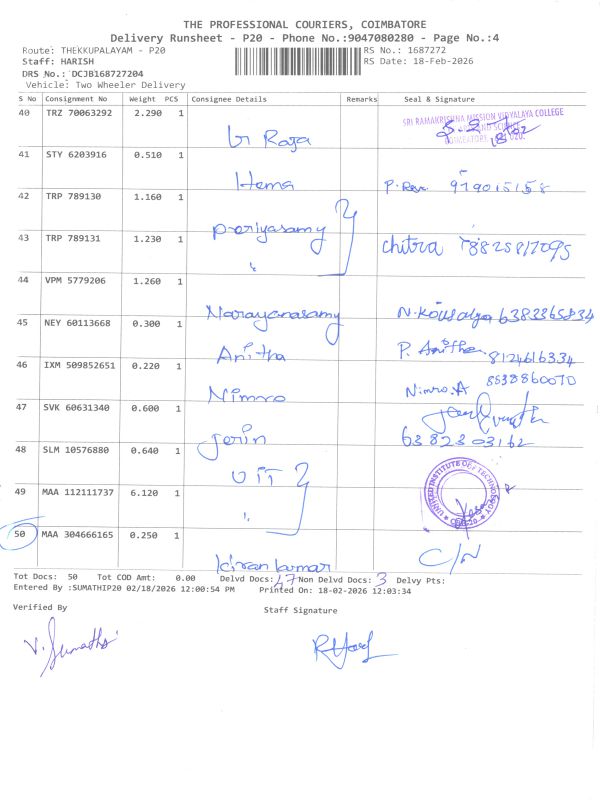 THE PROFESSIONAL COURIERS, COIMBATORE
Delivery Runsheet - P20 - Phone No.:9047080280 - Page No.:4
Route: THEKKUPALAYAM - P20 RS No.: 1687272
Staff: HARISH RS Date: 18-Feb-2026
DRS No.: DCJB168727204
Vehicle: Two Wheeler Delivery
S No Consignment No Weight PCS Consignee Details Remarks Seal & Signature
40 TRZ 70063292 2.290 1 SRI RAMAKRISHNA MISSION VIDYALAYA COLLEGE
Raja
41 STY 6203916 0.510 1
Hema
42 TRP 789130 1.160 1
Periyasamy
43 TRP 789131 1.230 1 chitra
44 VPM 5779206 1.260 1
Narayanasamy N. Kousalya 6383365834
45 NEY 60113668 0.300 1
Anitha P. Anitha 8124616334
46 IXM 509852651 0.220 1 8538860070
Nimro Nimro.A
47 SVK 60631340 0.600 1
Jerin 6382303162
48 SLM 10576880 0.640 1
UIT UNITED INSTITUTE OF TECHNOLOGY
49 MAA 112111737 6.120 1
50 MAA 304666165 0.250 1 C/N
kiran kumar
Tot Docs: 50 Tot COD Amt: 0.00 Delvd Docs: 47 Non Delvd Docs: 3 Delvy Pts:
Entered By :SUMATHIP20 02/18/2026 12:00:54 PM Printed On: 18-02-2026 12:03:34
Verified By Staff Signature
V. Sumathi